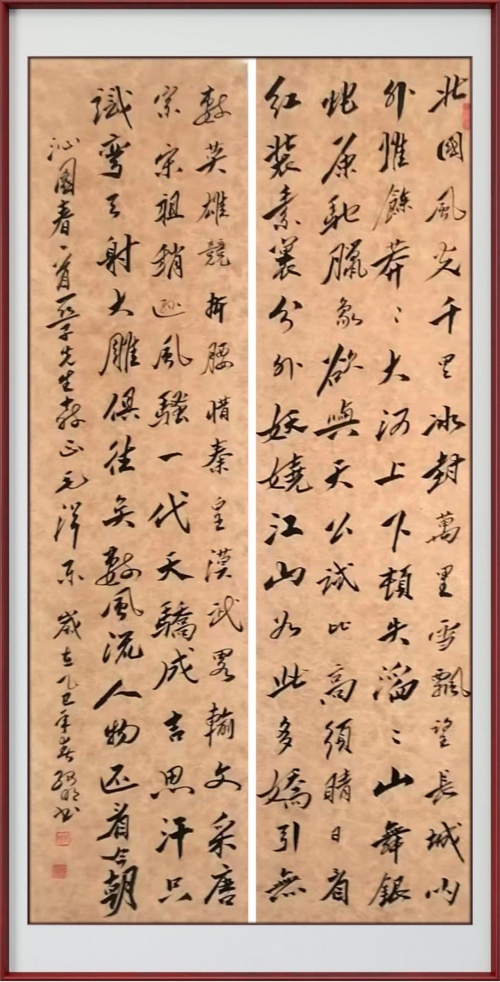 北國風光千里冰封萬里雪飄望長城内
外惟餘莽〻大河上下頓失滔〻山舞銀
蛇原馳臘象欲與天公試比高須晴日看
红装素裹分外妖嬈江山如此多嬌引無
數英雄競折腰惜秦皇漢武畧輸文采唐
宗宋祖稍逊風騷一代天驕成吉思汗只
識彎弓射大雕俱往矣數風流人物还看今朝
沁園春一首亞子先生教正毛泽东 歲在乙巳年春书